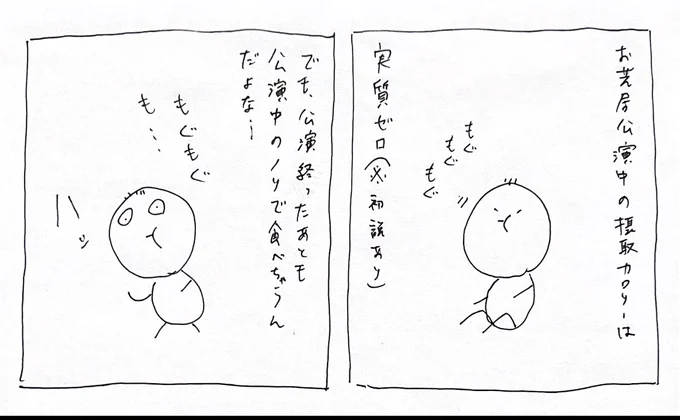 お芝居公演中の摂取カロリーは
実質ゼロ(※初談あり)
もぐ
もぐ
もぐ
でも、公演終ったあとも
公演中のノリで食べちゃうん
だよなー
もぐもぐ
も…
ハッ